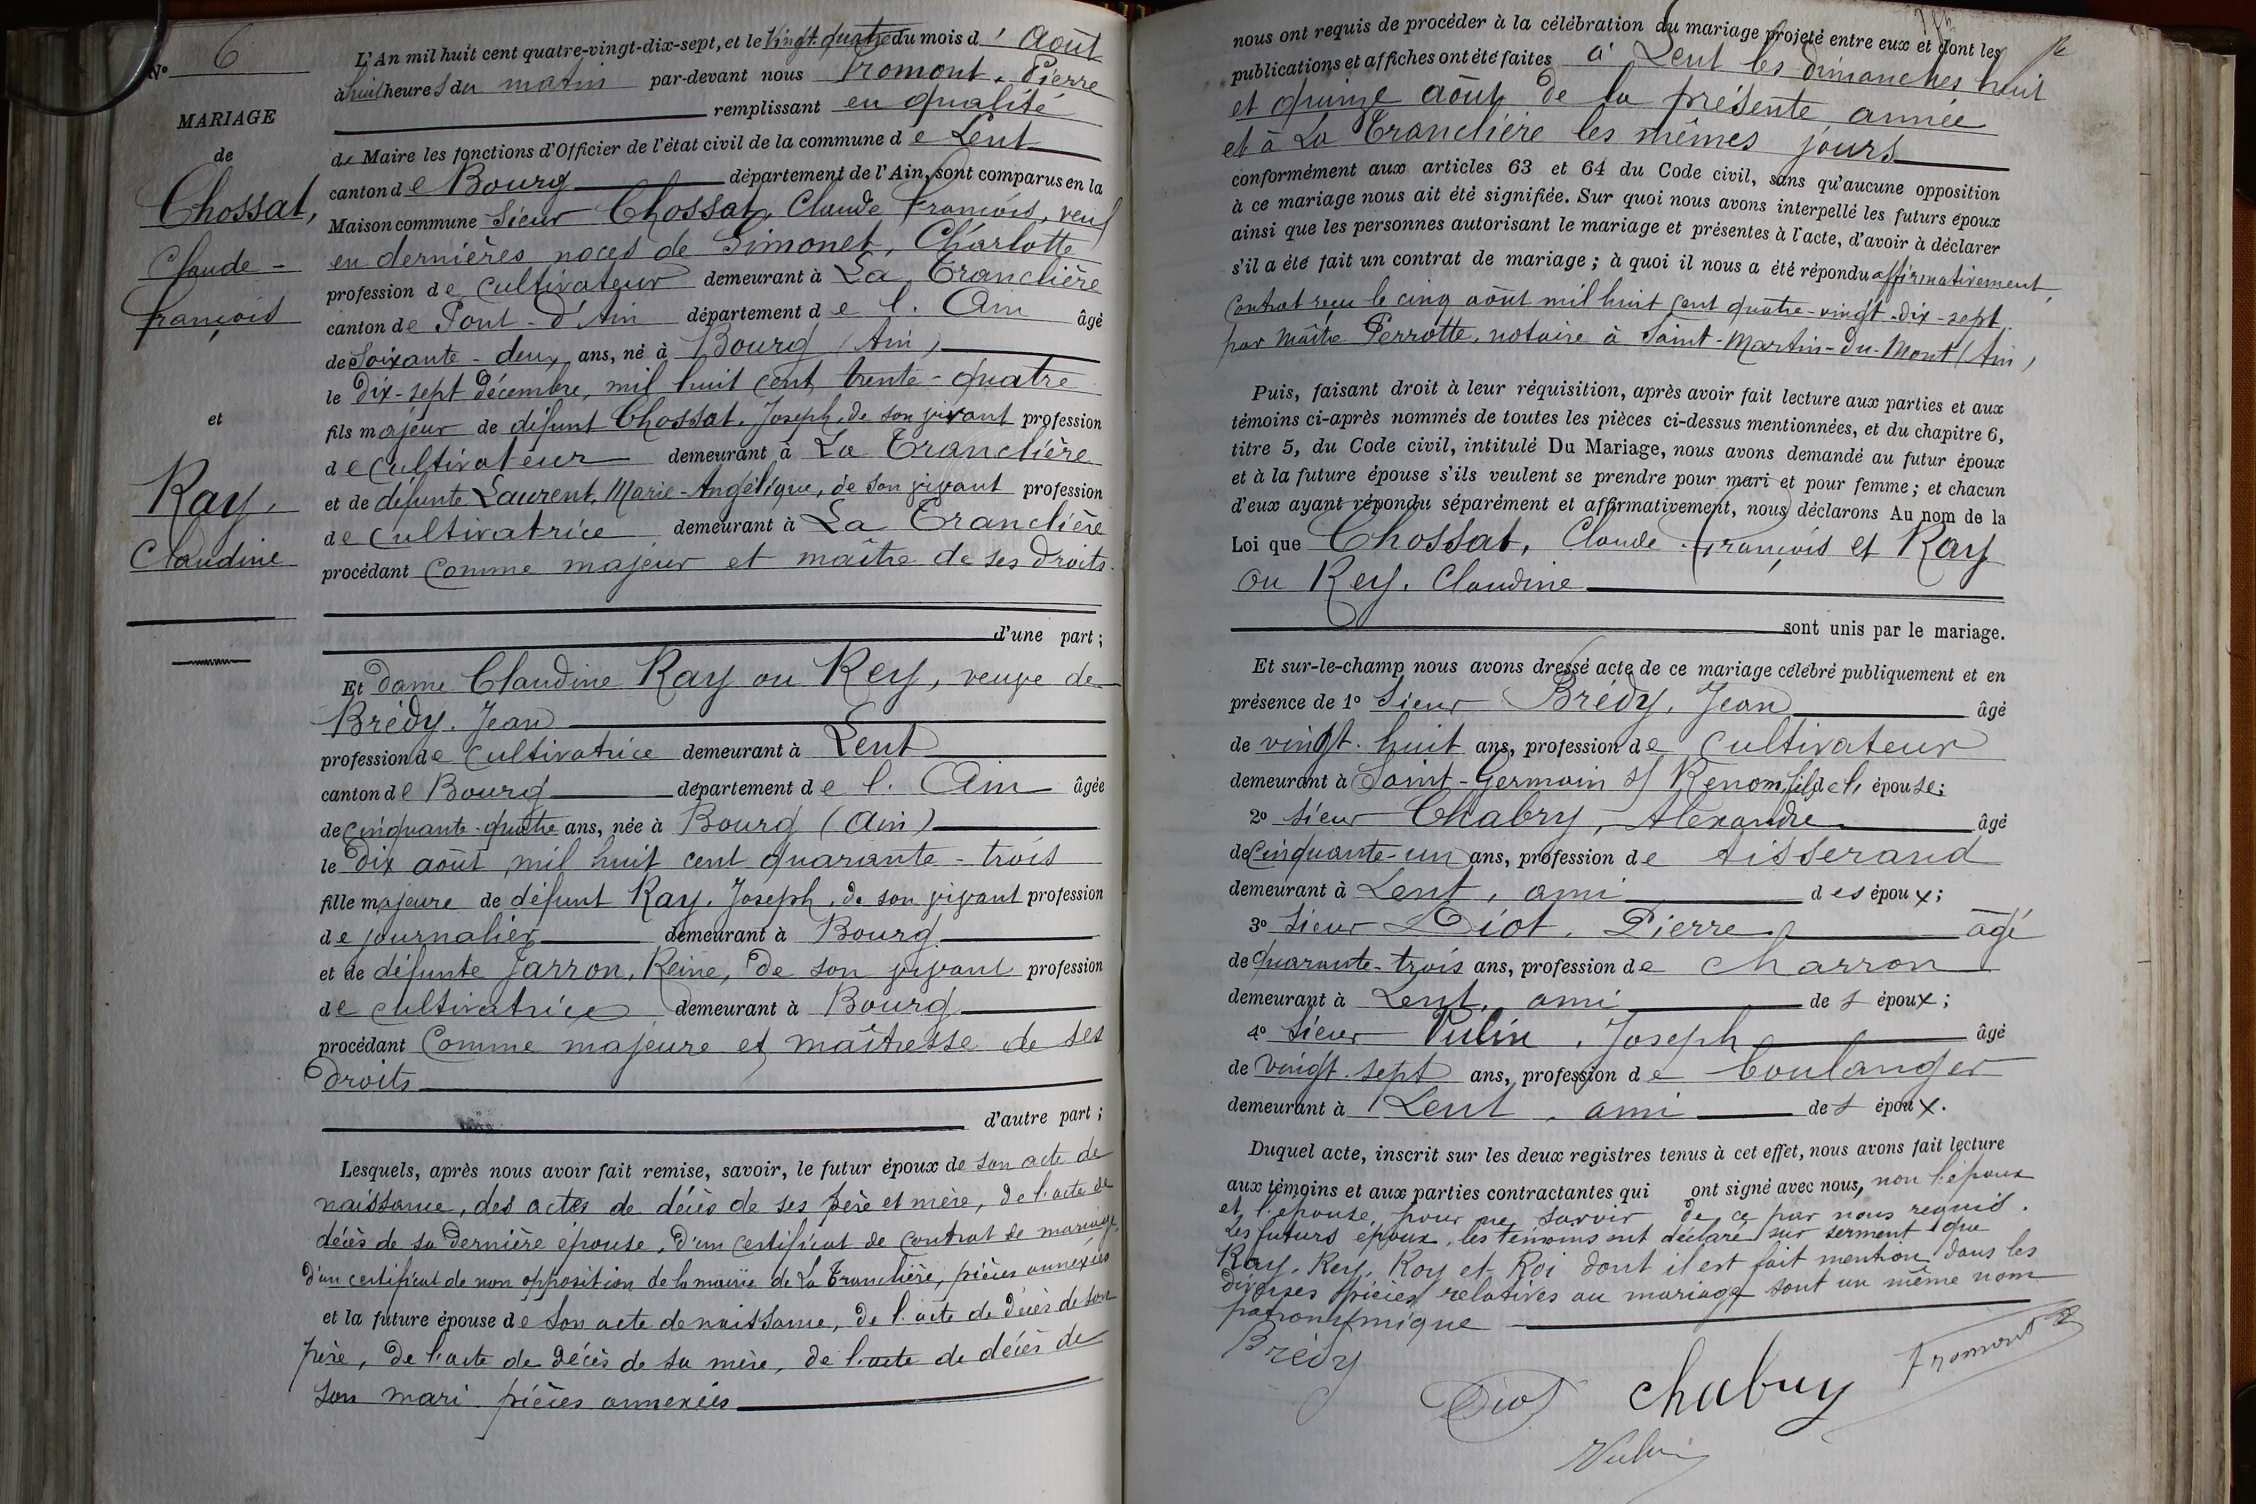 Nº 6
MARIAGE
de
Chossat,
Claude -
François
et
Ray,
Claudine
L'An mil huit cent quatre-vingt-dix-sept, et le Vingt-quatre du mois d' Août
à huit heures du matin par-devant nous Fromont, Pierre
remplissant en qualité
de Maire les fonctions d'Officier de l'état civil de la commune de Lent
canton de Bourg département de l'Ain, sont comparus en la
Maison commune Sieur Chossat, Claude François, veuf
en dernières noces de Simonet, Charlotte
profession de cultivateur demeurant à La Tranclière
canton de Pont-d'Ain département de l'Ain âgé
de Soixante-deux ans, né à Bourg (Ain)
le dix-sept décembre, mil huit cent trente-quatre
fils majeur de défunt Chossat, Joseph, de son vivant profession
de cultivateur demeurant à La Tranclière
et de défunte Laurent, Marie-Angélique, de son vivant profession
de cultivatrice demeurant à La Tranclière
procédant comme majeur et maître de ses droits.
d'une part ;
Et dame Claudine Ray ou Rey, veuve de
Brédy, Jean
profession de cultivatrice demeurant à Lent
canton de Bourg département de l'Ain âgée
de cinquante-quatre ans, née à Bourg (Ain)
le Dix août, mil huit cent quarante-trois
fille majeure de défunt Ray, Joseph, de son vivant profession
de journalier demeurant à Bourg
et de défunte Jarron, Reine, de son vivant profession
de cultivatrice demeurant à Bourg
procédant comme majeure et maîtresse de ses
Droits
d'autre part ;
Lesquels, après nous avoir fait remise, savoir, le futur époux de son acte de
naissance, des actes de décès de ses père et mère, de l'acte de
décès de sa dernière épouse, d'un certificat de contrat de mariage,
d'un certificat de non opposition de la mairie de La Tranclière, pièces annexées
et la future épouse de son acte de naissance, de l'acte de décès de son
père, de l'acte de décès de sa mère, de l'acte de décès de
son mari. pièces annexées
nous ont requis de procéder à la célébration du mariage projeté entre eux et dont les
publications et affiches ont été faites à Lent les dimanches huit
et quinze août de la présente année
et à La Tranclière les mêmes jours
conformément aux articles 63 et 64 du Code civil, sans qu'aucune opposition
à ce mariage nous ait été signifiée. Sur quoi nous avons interpellé les futurs époux
ainsi que les personnes autorisant le mariage et présentes à l'acte, d'avoir à déclarer
s'il a été fait un contrat de mariage ; à quoi il nous a été répondu affirmativement,
contrat reçu le cinq août mil huit cent quatre-vingt-dix-sept
par Maître Perrotte, notaire à Saint-Martin-du-Mont (Ain)
Puis, faisant droit à leur réquisition, après avoir fait lecture aux parties et aux
témoins ci-après nommés de toutes les pièces ci-dessus mentionnées, et du chapitre 6,
titre 5, du Code civil, intitulé Du Mariage, nous avons demandé au futur époux
et à la future épouse s'ils veulent se prendre pour mari et pour femme ; et chacun
d'eux ayant répondu séparément et affirmativement, nous déclarons Au nom de la
Loi que Chossat, Claude François et Ray
ou Rey, Claudine
sont unis par le mariage.
Et sur-le-champ nous avons dressé acte de ce mariage célébré publiquement et en
présence de 1º Sieur Brédy, Jean âgé
de vingt-huit ans, profession de cultivateur
demeurant à Saint-Germain s/ Renom, fils de l' épouse ;
2º Sieur Chabry, Alexandre âgé
de cinquante-un ans, profession de tisserand
demeurant à Lent, ami des époux ;
3º Sieur Diot, Pierre âgé
de quarante-trois ans, profession de charron
demeurant à Lent, ami des époux ;
4º Sieur Vulin, Joseph âgé
de vingt-sept ans, profession de boulanger
demeurant à Lent, ami des époux.
Duquel acte, inscrit sur les deux registres tenus à cet effet, nous avons fait lecture
aux témoins et aux parties contractantes qui ont signé avec nous, non l'époux
et l'épouse, pour ne savoir de ce par nous requis.
Les futurs époux, les témoins ont déclaré sur serment que
Ray, Rey, Roy et Roi dont il est fait mention dans les
diverses pièces relatives au mariage sont un même nom
patronymique
Brédy
Diot chabry Fromont
Vulin